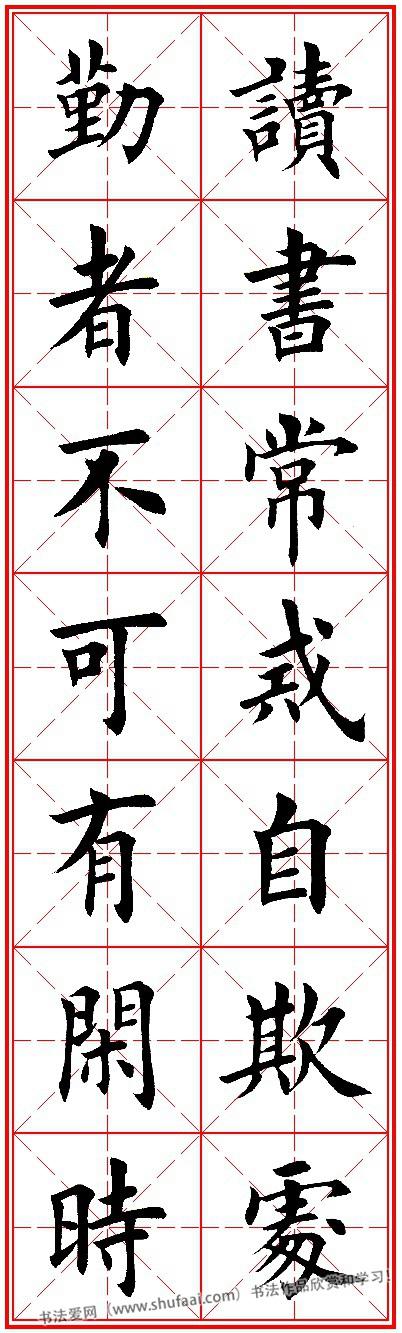 讀書常戒自欺處
勤者不可有閑時
书法爱网（www.shufaai.com）书法作品欣赏和学习！